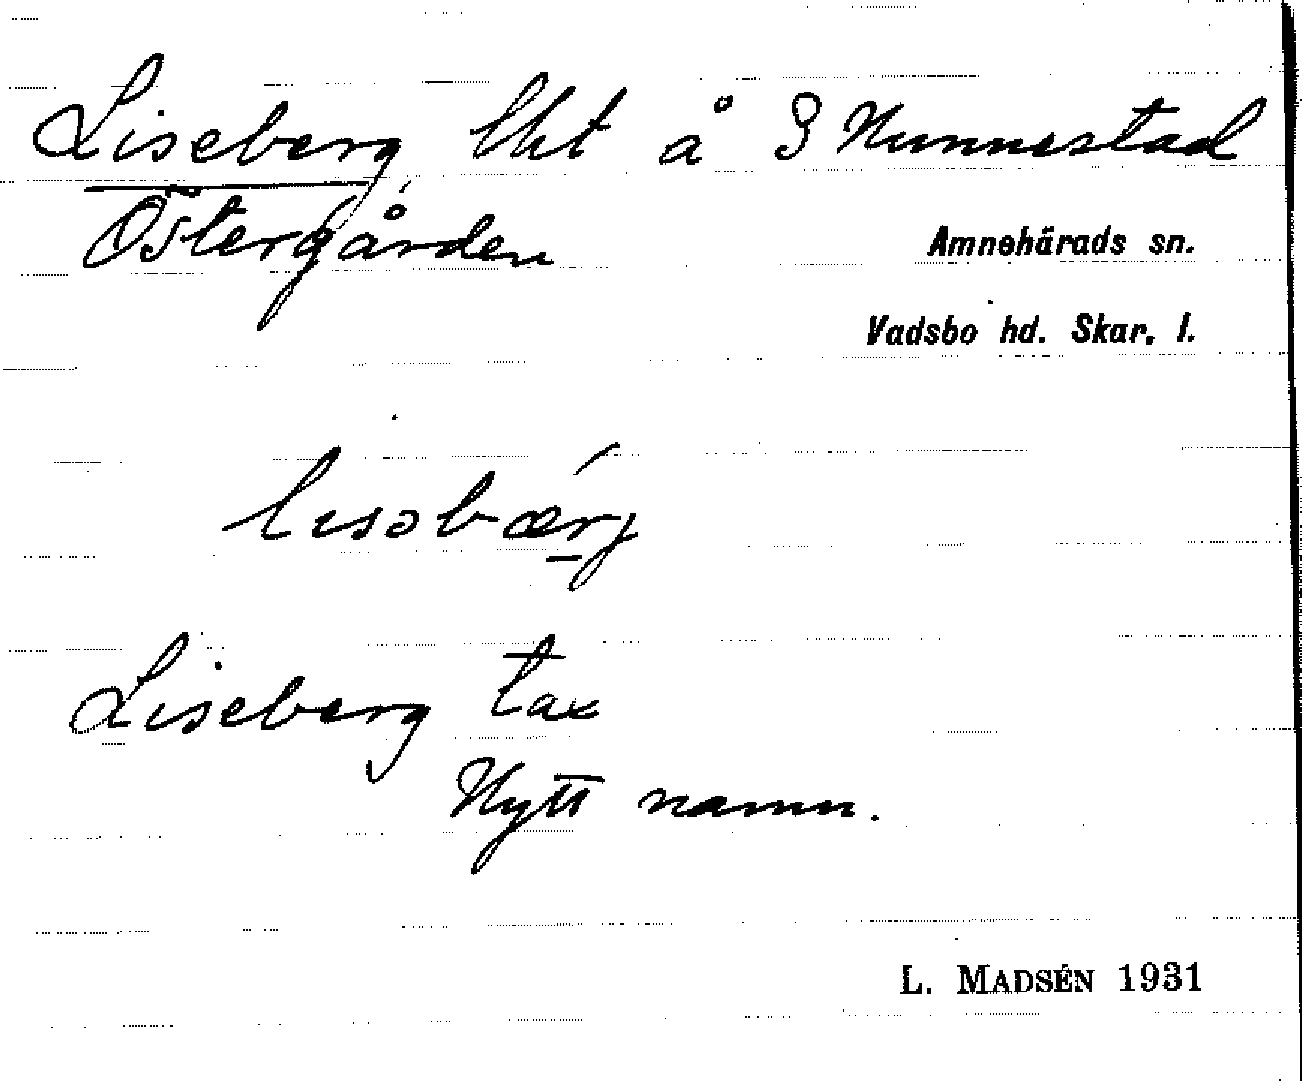 Liseberg lht å S Hunnestad
Östergården
Amnehärads sn.
Vadsbo hd. Skar. l.
lisəbærj
Liseberg tax
Nytt namn.
L. MADSÉN 1931